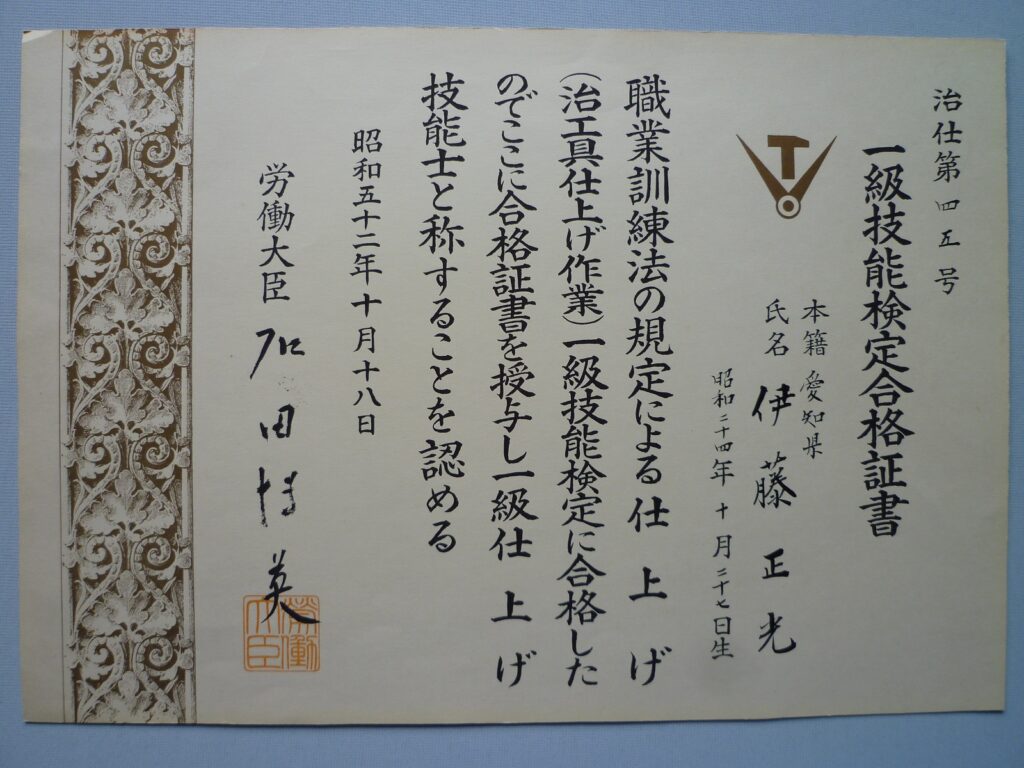 治仕第四五号
一級技能検定合格証書
本籍 愛知県
氏名 伊藤正光
昭和二十四年十月二十七日生
職業訓練法の規定による仕上げ
(治工具仕上げ作業)一級技能検定に合格した
のでここに合格証書を授与し一級仕上げ
技能士と称することを認める
昭和五十二年十月十八日
労働大臣 石田博英
労働大臣